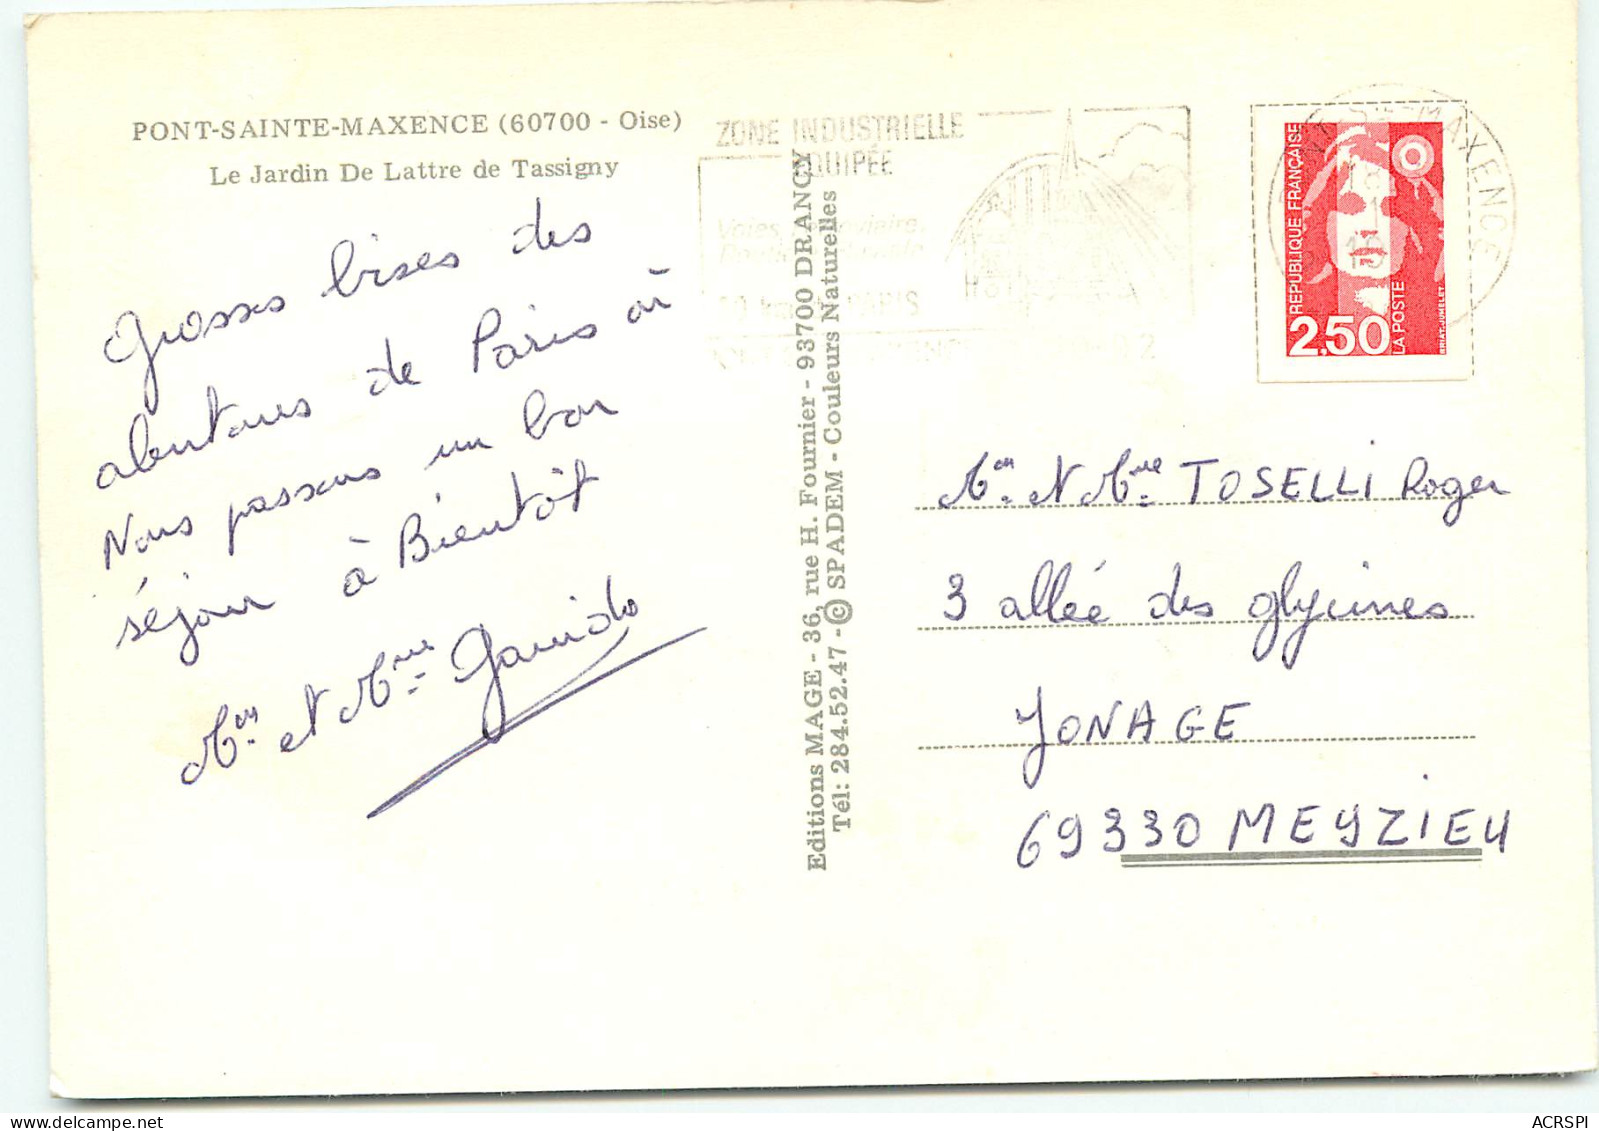 PONT-SAINTE-MAXENCE (60700 - Oise)
Le Jardin De Lattre de Tassigny
Grosses bises des
alentours de Paris où
Nous passons un bon
séjour à Bientôt
Mr et Mme Garrido
Editions MAGE - 36, rue H. Fournier - 93700 DRANCY
Tél: 284.52.47 - © SPADEM - Couleurs Naturelles
ZONE INDUSTRIELLE
PARIS
MAXENCE
RÉPUBLIQUE FRANÇAISE
2,50
LA POSTE
BRIAT-JUMELET
Mr et Mme TOSELLI Roger
3 allée des glycines
JONAGE
69330 MEYZIEU
ACRSPI